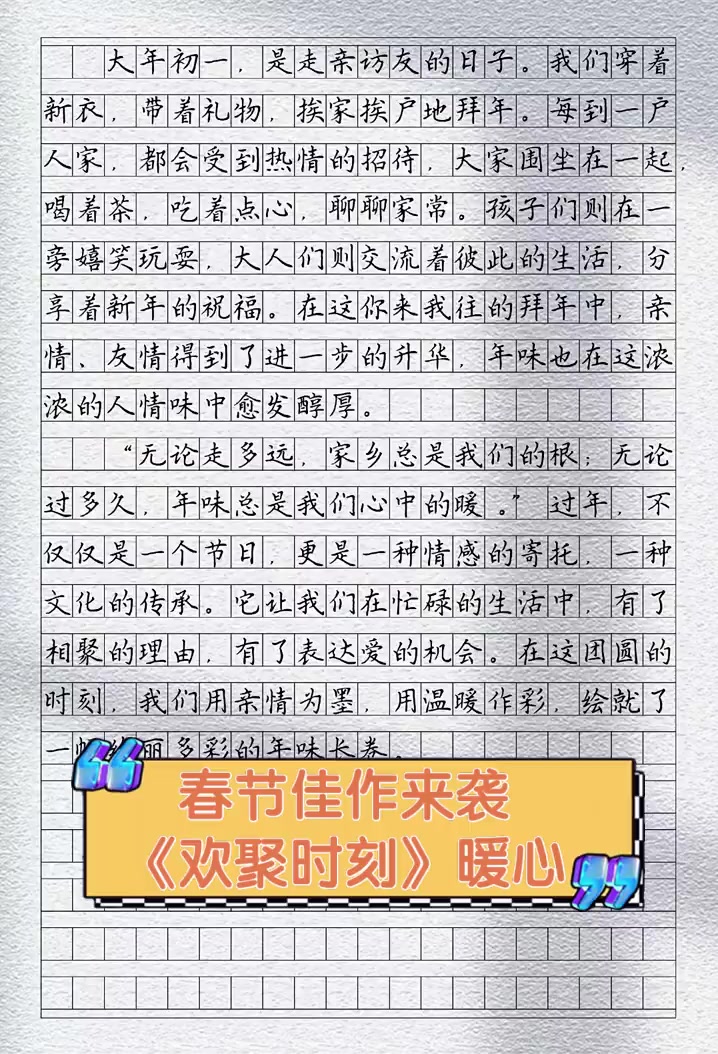 大年初一，是走亲访友的日子。我们穿着
新衣，带着礼物，挨家挨户地拜年。每到一户
人家，都会受到热情的招待，大家围坐在一起，
喝着茶，吃着点心，聊聊家常。孩子们则在一
旁嬉笑玩耍，大人们则交流着彼此的生活，分
享着新年的祝福。在这你来我往的拜年中，亲
情、友情得到了进一步的升华，年味也在这浓
浓的人情味中愈发醇厚。
“无论走多远，家乡总是我们的根；无论
过多久，年味总是我们心中的暖。”过年，不
仅仅是一个节日，更是一种情感的寄托，一种
文化的传承。它让我们在忙碌的生活中，有了
相聚的理由，有了表达爱的机会。在这团圆的
时刻，我们用亲情为墨，用温暖作彩，绘就了
一丽多彩的年味长卷。
春节佳作来袭
《欢聚时刻》暖心